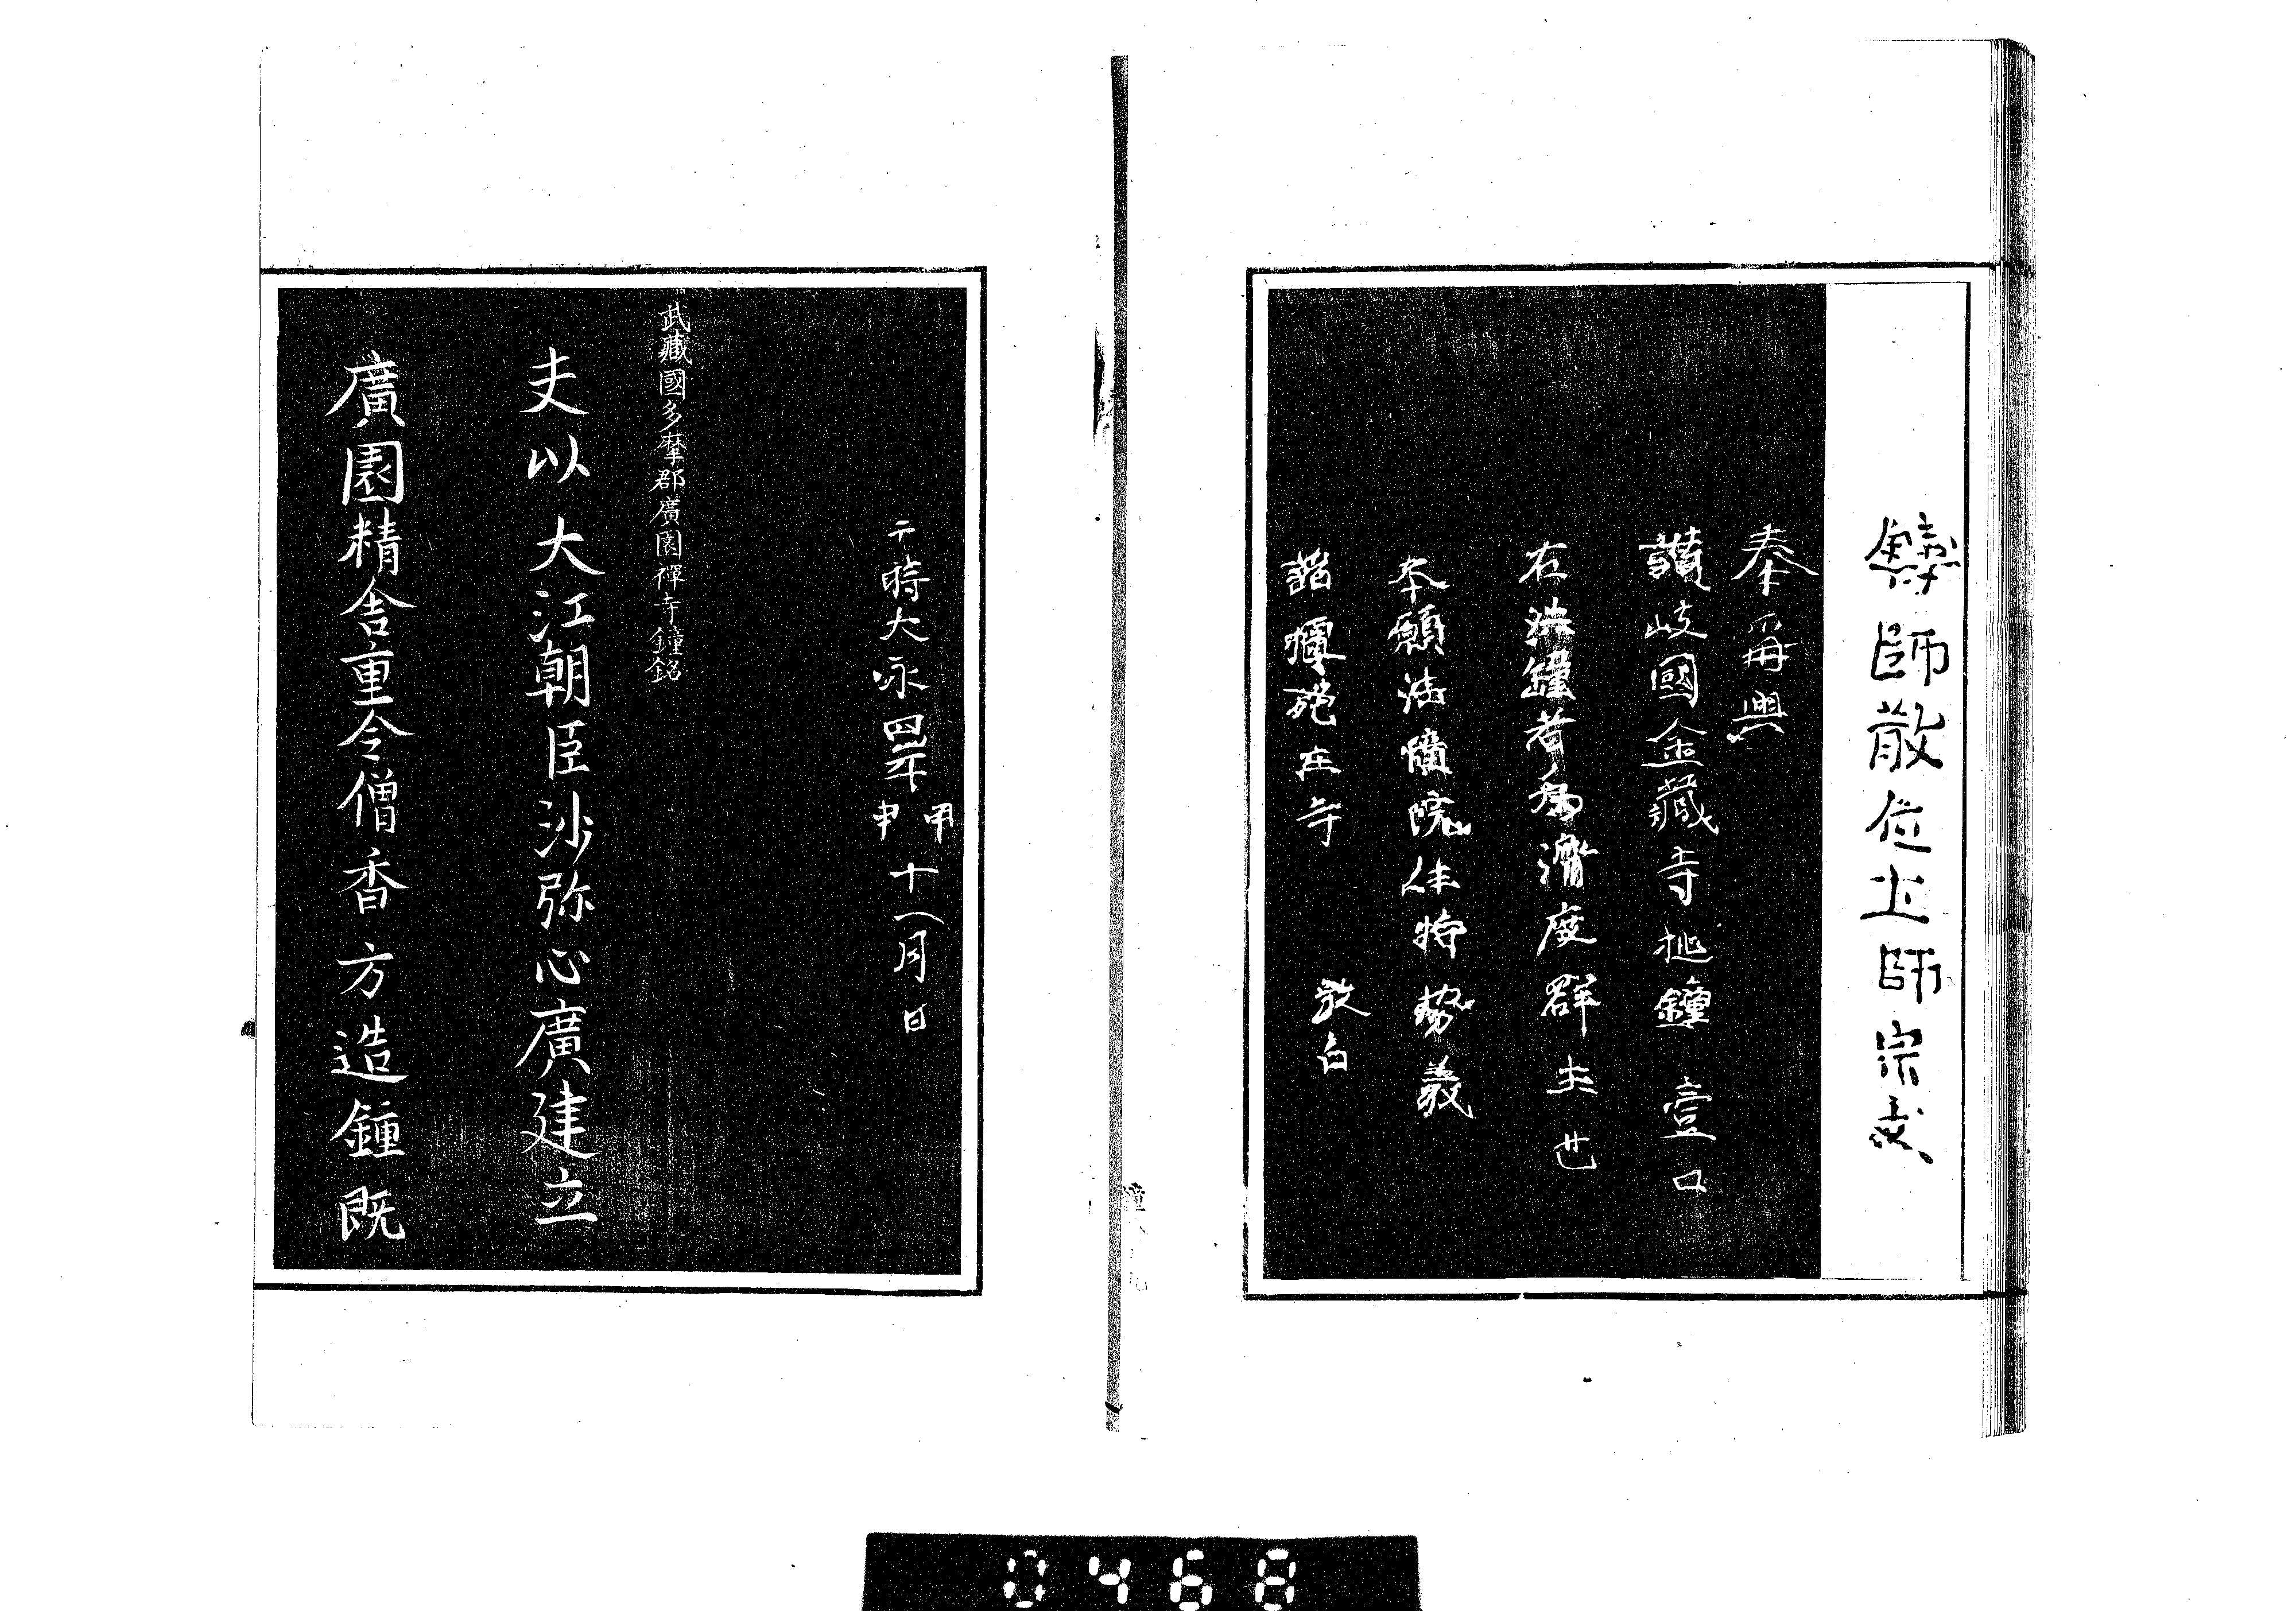 鑄師散位土師宗
奉再興
讃岐國金藏寺槌鐘壹口
右洪鐘者為濟度群生也
本願法幢院住持勢義
諸檀那在寺　敬白
于時大永四年甲申十一月日
武藏國多摩郡廣園禪寺鐘銘
夫以大江朝臣沙弥心廣建立
廣園精舎重令僧香方造鍾既
0468